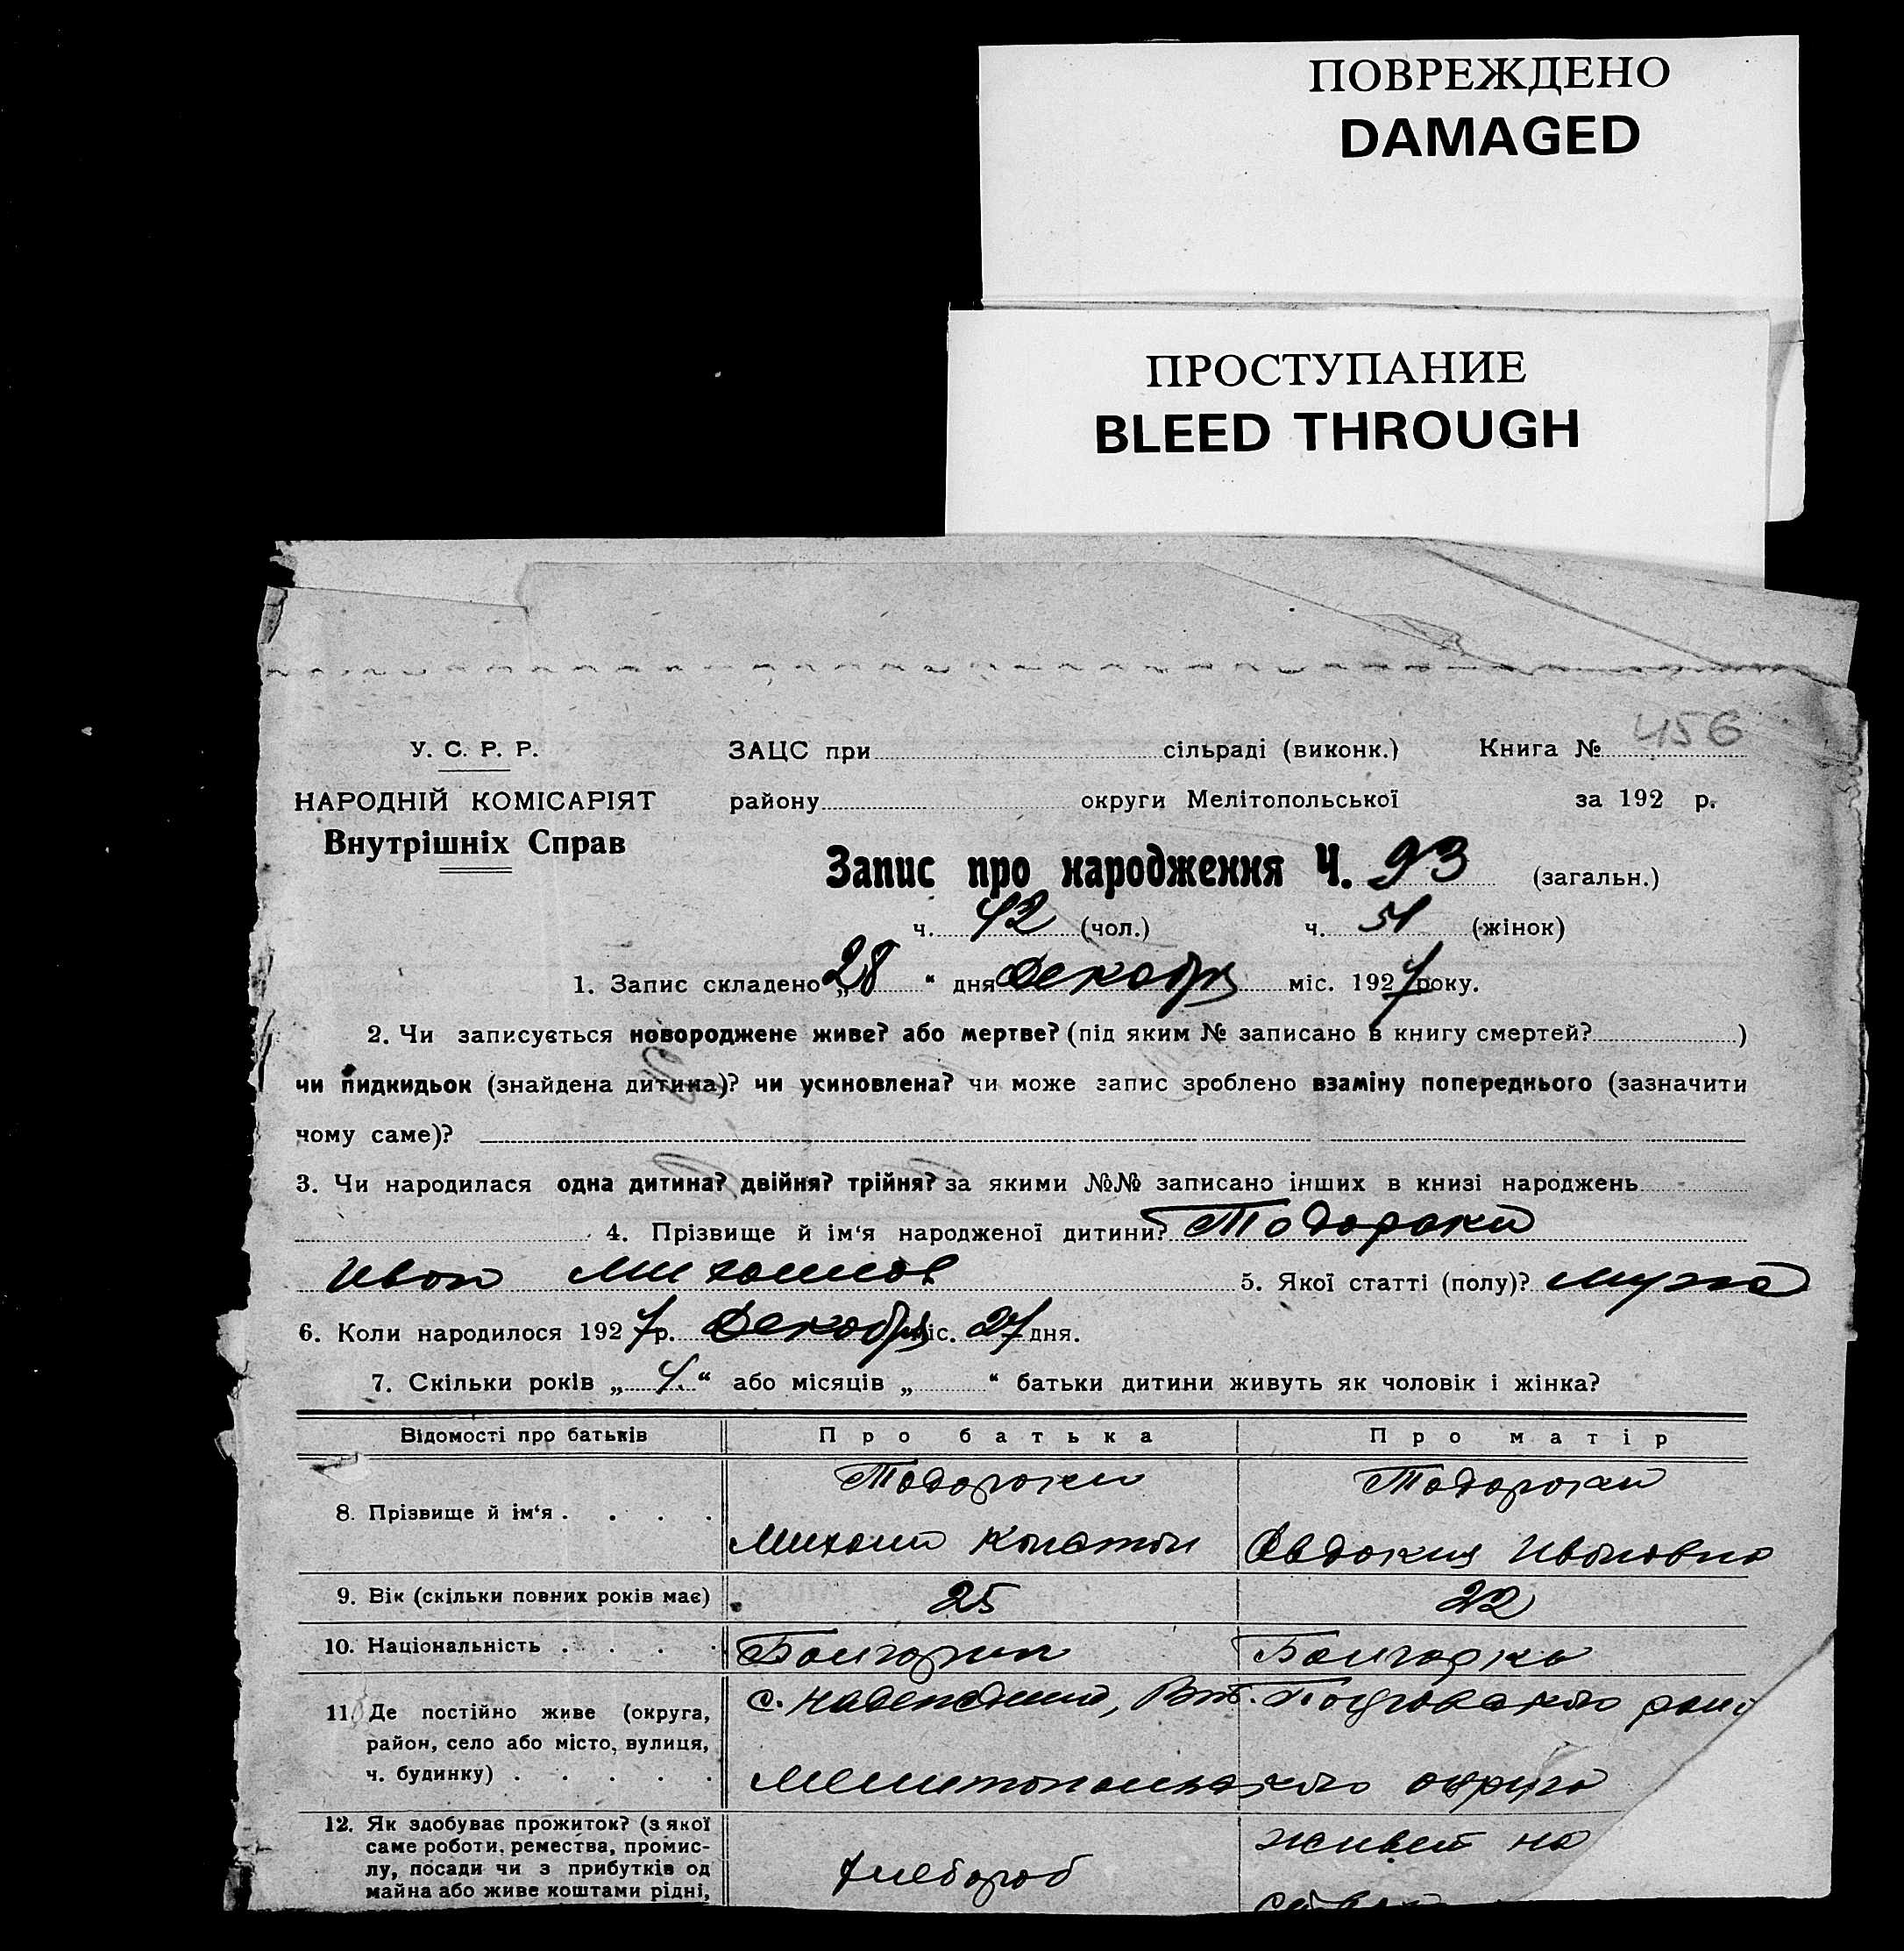 ПОВРЕЖДЕНО
DAMAGED
ПРОСТУПАНИЕ
BLEED THROUGH
456
У. С. Р. Р.
ЗАЦС при сільраді (виконк.) Книга №
НАРОДНІЙ КОМІСАРІЯТ
району округи Мелітопольської за 192 р.
Внутрішніх Справ
Запис про народження Ч. 93 (загальн.)
ч. 42 (чол.) ч. 51 (жінок)
1. Запис складено „28“ дня Декабря міс. 1927 року.
2. Чи записується новороджене живе? або мертве? (під яким № записано в книгу смертей? )
чи пидкидьок (знайдена дитина)? чи усиновлена? чи може запис зроблено взаміну попереднього (зазначити
чому саме)?
3. Чи народилася одна дитина? двійня? трійня? за якими №№ записано інших в книзі народжень
4. Прізвище й ім'я народженої дитини? Тодораки
Иван Михаилов 5. Якої статті (полу)?
6. Коли народилося 1927 р. Декабря міс. 27 дня.
7. Скільки років „4.“ або місяців „ “ батьки дитини живуть як чоловік і жінка?
Відомості про батьків Про батька Про матір
Тодораки Тодораки
8. Прізвище й ім'я . . . .
Михаил Констан Евдокия Ивановна
9. Вік (скільки повних років має) 25 22
10. Національність . . . . Болгарин Болгарка
с. Надеждино, Бот.
11. Де постійно живе (округа,
район, село або місто, вулиця,
ч. будинку) . . . . . Мелитопольского округа
12. Як здобуває прожиток? (з якої
саме роботи, ремества, промис-
лу, посади чи з прибутків од
майна або живе коштами рідні,
хлебороб живет на